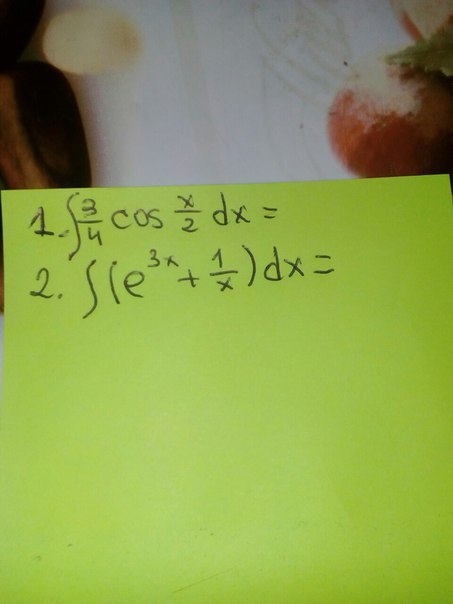 1. ∫ 3/4 cos x/2 dx =
2. ∫ (e^{3x} + 1/x) dx =